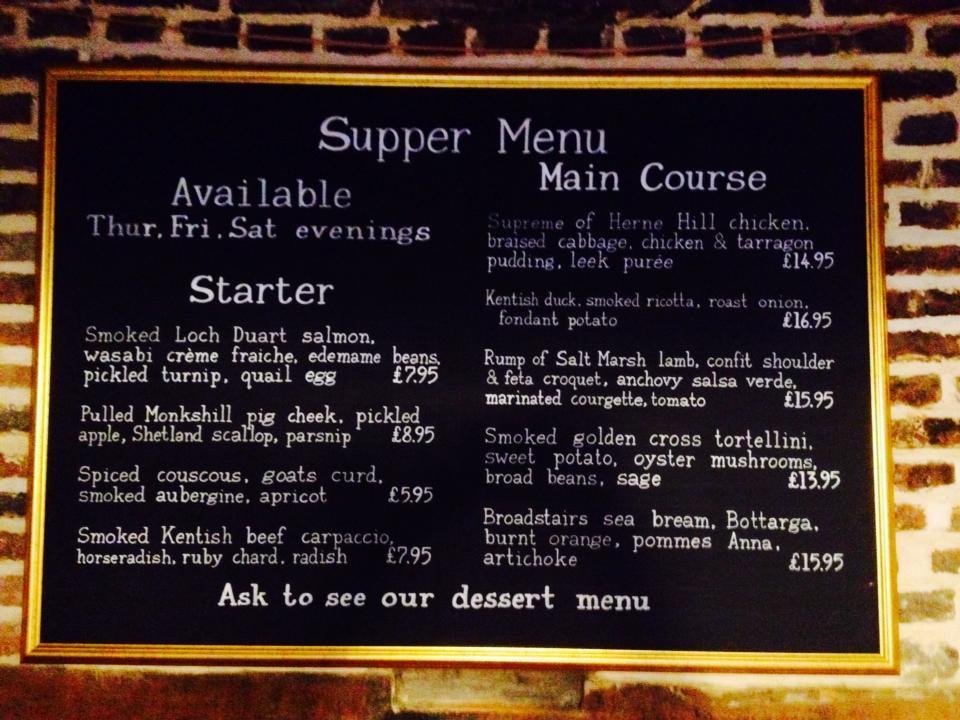 Supper Menu
Available
Thur, Fri, Sat evenings
Starter
Smoked Loch Duart salmon,
wasabi crème fraiche, edemame beans,
pickled turnip, quail egg £7.95
Pulled Monkshill pig cheek, pickled
apple, Shetland scallop, parsnip £8.95
Spiced couscous, goats curd,
smoked aubergine, apricot £5.95
Smoked Kentish beef carpaccio,
horseradish, ruby chard, radish £7.95
Main Course
Supreme of Herne Hill chicken,
braised cabbage, chicken & tarragon
pudding, leek purée £14.95
Kentish duck, smoked ricotta, roast onion,
fondant potato £16.95
Rump of Salt Marsh lamb, confit shoulder
& feta croquet, anchovy salsa verde,
marinated courgette, tomato £15.95
Smoked golden cross tortellini,
sweet potato, oyster mushrooms,
broad beans, sage £13.95
Broadstairs sea bream, Bottarga,
burnt orange, pommes Anna,
artichoke £15.95
Ask to see our dessert menu